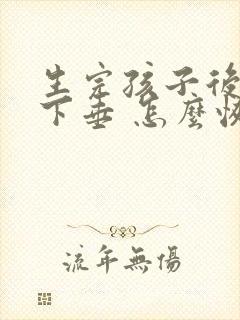 生完孩子後
下垂 怎麼恢
流年無傷